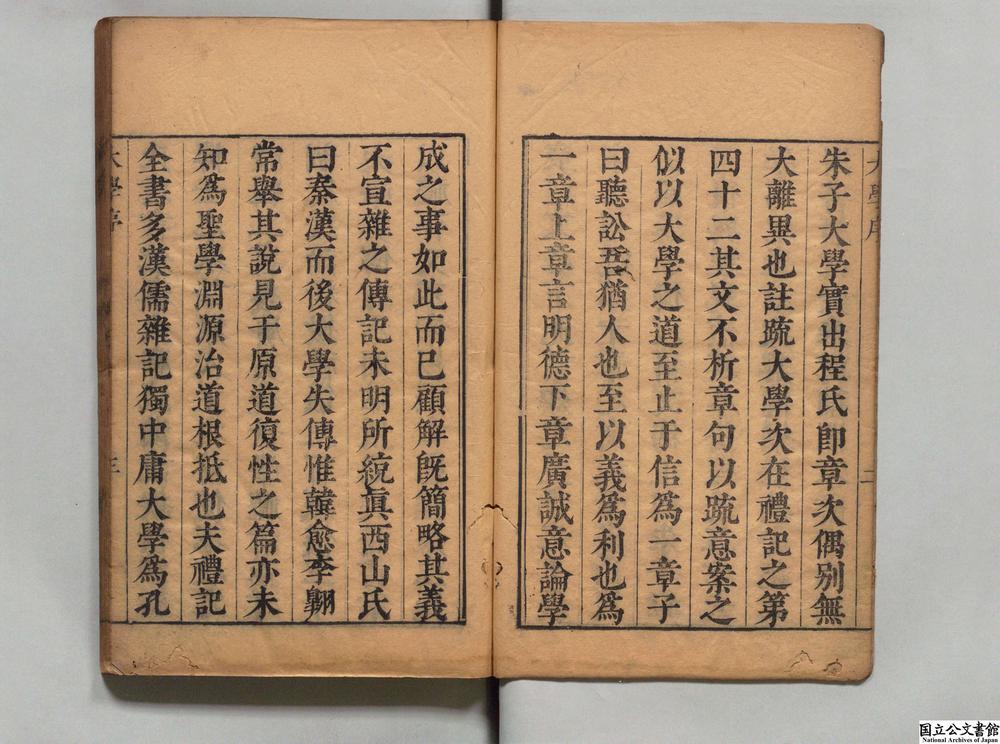 朱子大學實出程氏卽章次偶别無
大離異也註疏大學次在禮記之第
四十二其文不析章句以疏意案之
似以大學之道至止于信爲一章子
曰聽訟吾猶人也至以義爲利也爲
一章上章言明德下章廣誠意論學
大學序
二
成之事如此而已顧解旣簡略其義
不宣雜之傳記未明所統眞西山氏
曰秦漢而後大學失傳惟韓愈李翺
常舉其說見于原道復性之篇亦未
知爲聖學淵源治道根抵也夫禮記
全書多漢儒雜記獨中庸大學爲孔
大學序
三
国立公文書館
National Archives of Japan